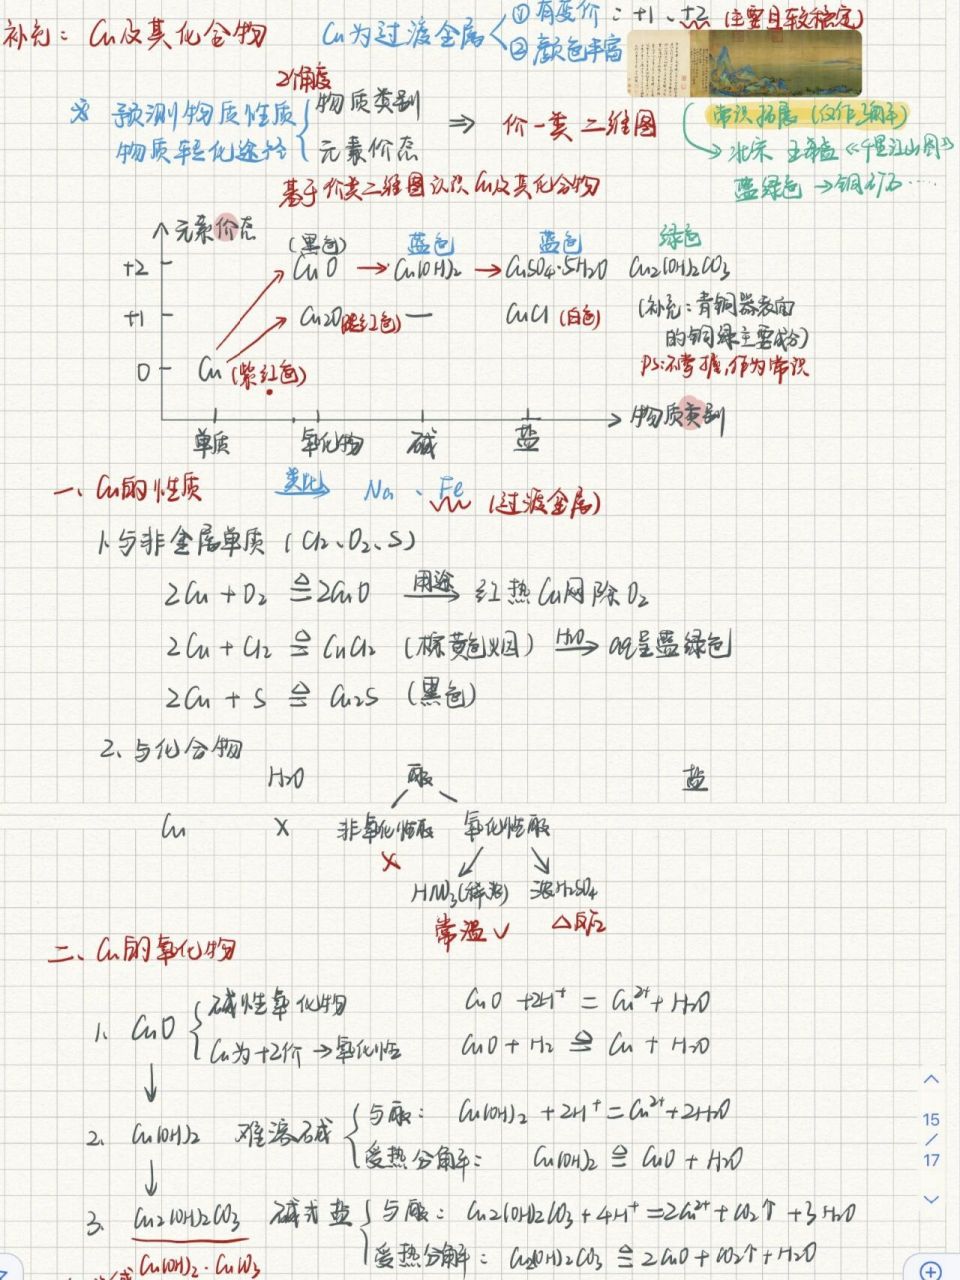 补充：Cu及其化合物 Cu为过渡金属
①有变价：+1、+2 (主要且较稳定)
②颜色丰富
2个角度
※ 预测物质性质
物质转化途径
物质类别
元素价态
⇒ 价一类二维图
常识拓展
→北宋 王希孟《千里江山图》
蓝绿色 →铜矿石……
基于价类二维图认识Cu及其化合物
元素价态
(黑色) 蓝色 蓝色 绿色
+2 CuO → Cu(OH)2 → CuSO4·5H2O Cu2(OH)2CO3
+1 Cu2O (砖红色) — CuCl (白色)
(补充：青铜器表面
的铜绿主要成分)
0 Cu (紫红色)
PS：不掌握，作为常识
物质类别
单质 氧化物 碱 盐
一、Cu的性质 类比→ Na、Fe (过渡金属)
1、与非金属单质 (Cl2、O2、S)
2Cu + O2 ≜ 2CuO 用途→ 红热Cu网除O2
2Cu + Cl2 ≜ CuCl2 (棕黄色烟) H2O→ aq呈蓝绿色
2Cu + S ≜ Cu2S (黑色)
2、与化合物
H2O 酸 盐
Cu X 非氧化性酸 氧化性酸
X
HNO3(稀浓) 浓H2SO4
常温✓ △反应
二、Cu的氧化物
1、CuO
碱性氧化物 CuO + 2H⁺ = Cu²⁺ + H2O
Cu为+2价→氧化性 CuO + H2 ≜ Cu + H2O
2、Cu(OH)2 难溶碱
与酸： Cu(OH)2 + 2H⁺ = Cu²⁺ + 2H2O
受热分解： Cu(OH)2 ≜ CuO + H2O
15
/
17
3、Cu2(OH)2CO3 碱式盐
与酸： Cu2(OH)2CO3 + 4H⁺ = 2Cu²⁺ + CO2↑ + 3H2O
受热分解： Cu2(OH)2CO3 ≜ 2CuO + CO2↑ + H2O
Cu(OH)2·CuCO3